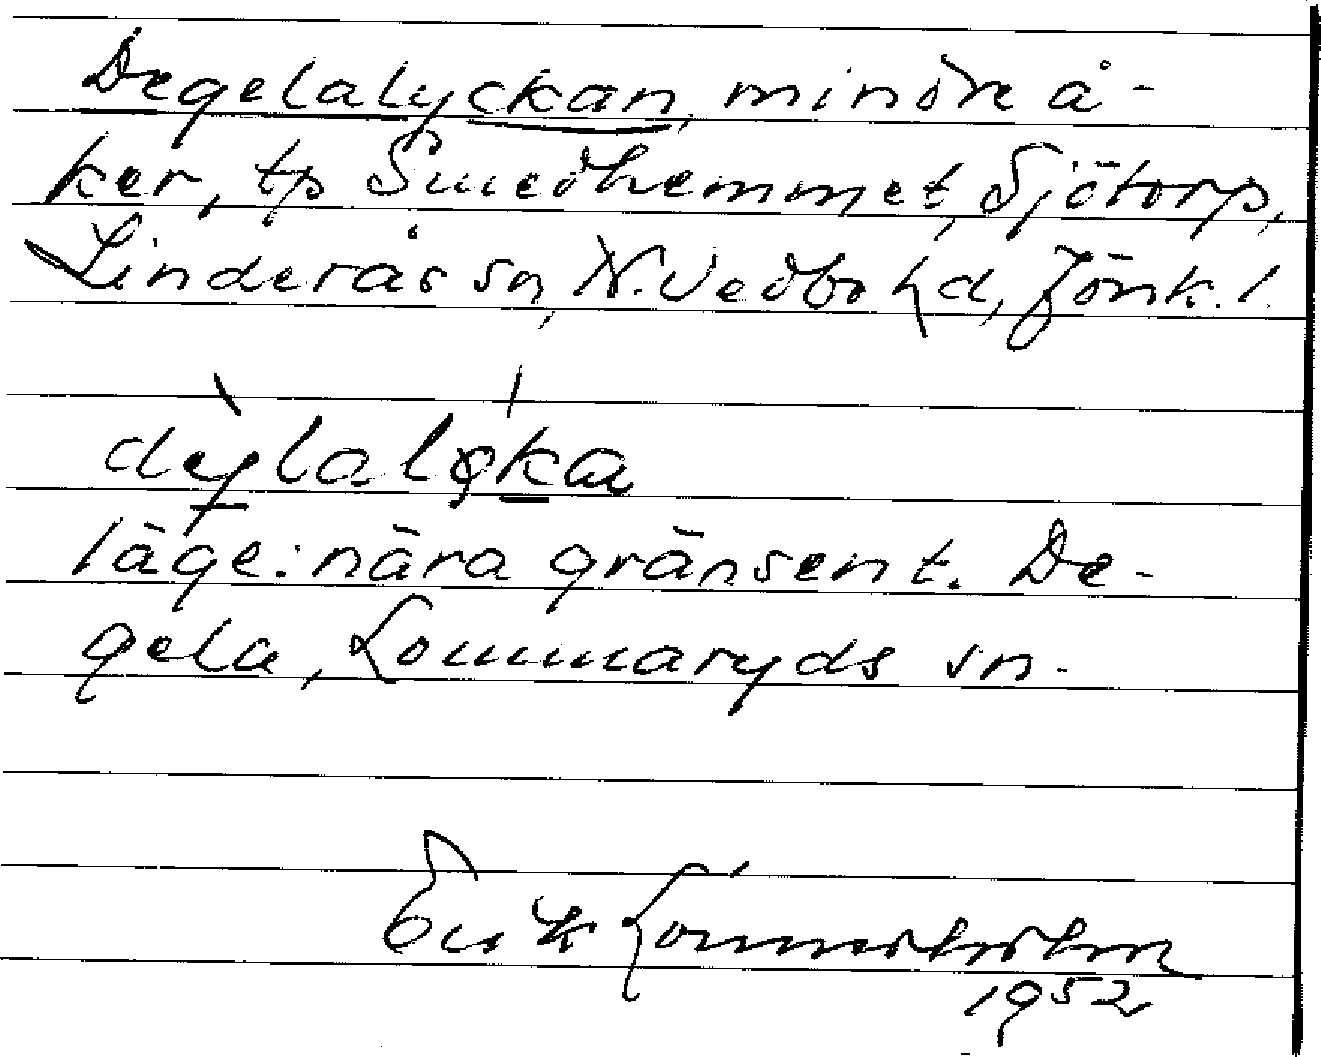 Degelalyckan, mindre å-
ker, tp Smedhemmet, Sjötorp,
Linderås sn, N. Vedbo hd, Jönk. l.
läge: nära gränsen t. De-
gela, Lommaryds sn.
Erik Lönnerholm
1952